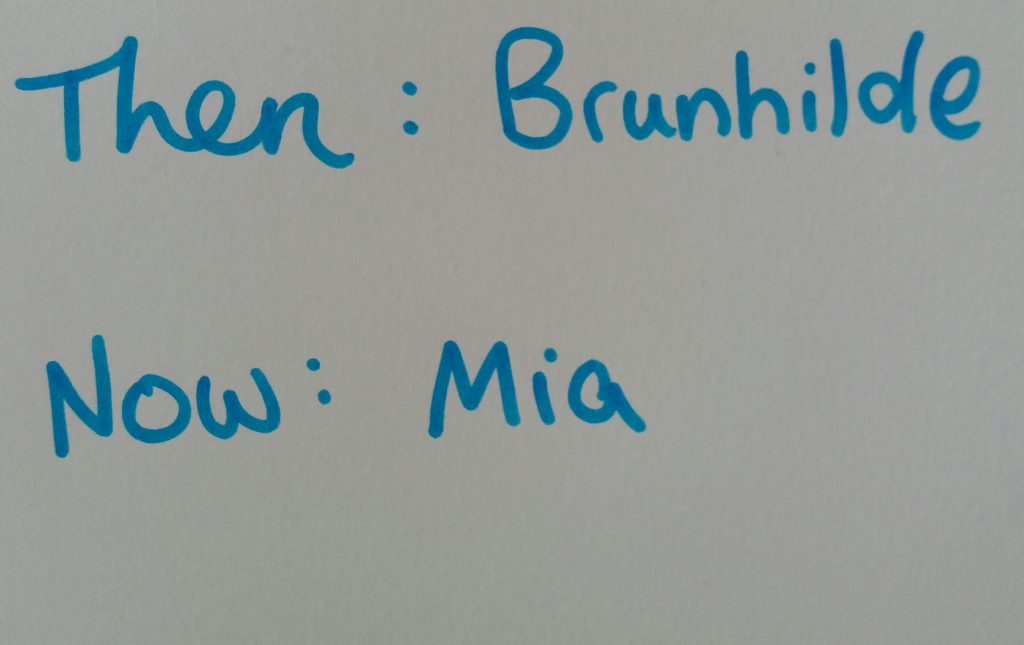 Then : Brunhilde
Now : Mia